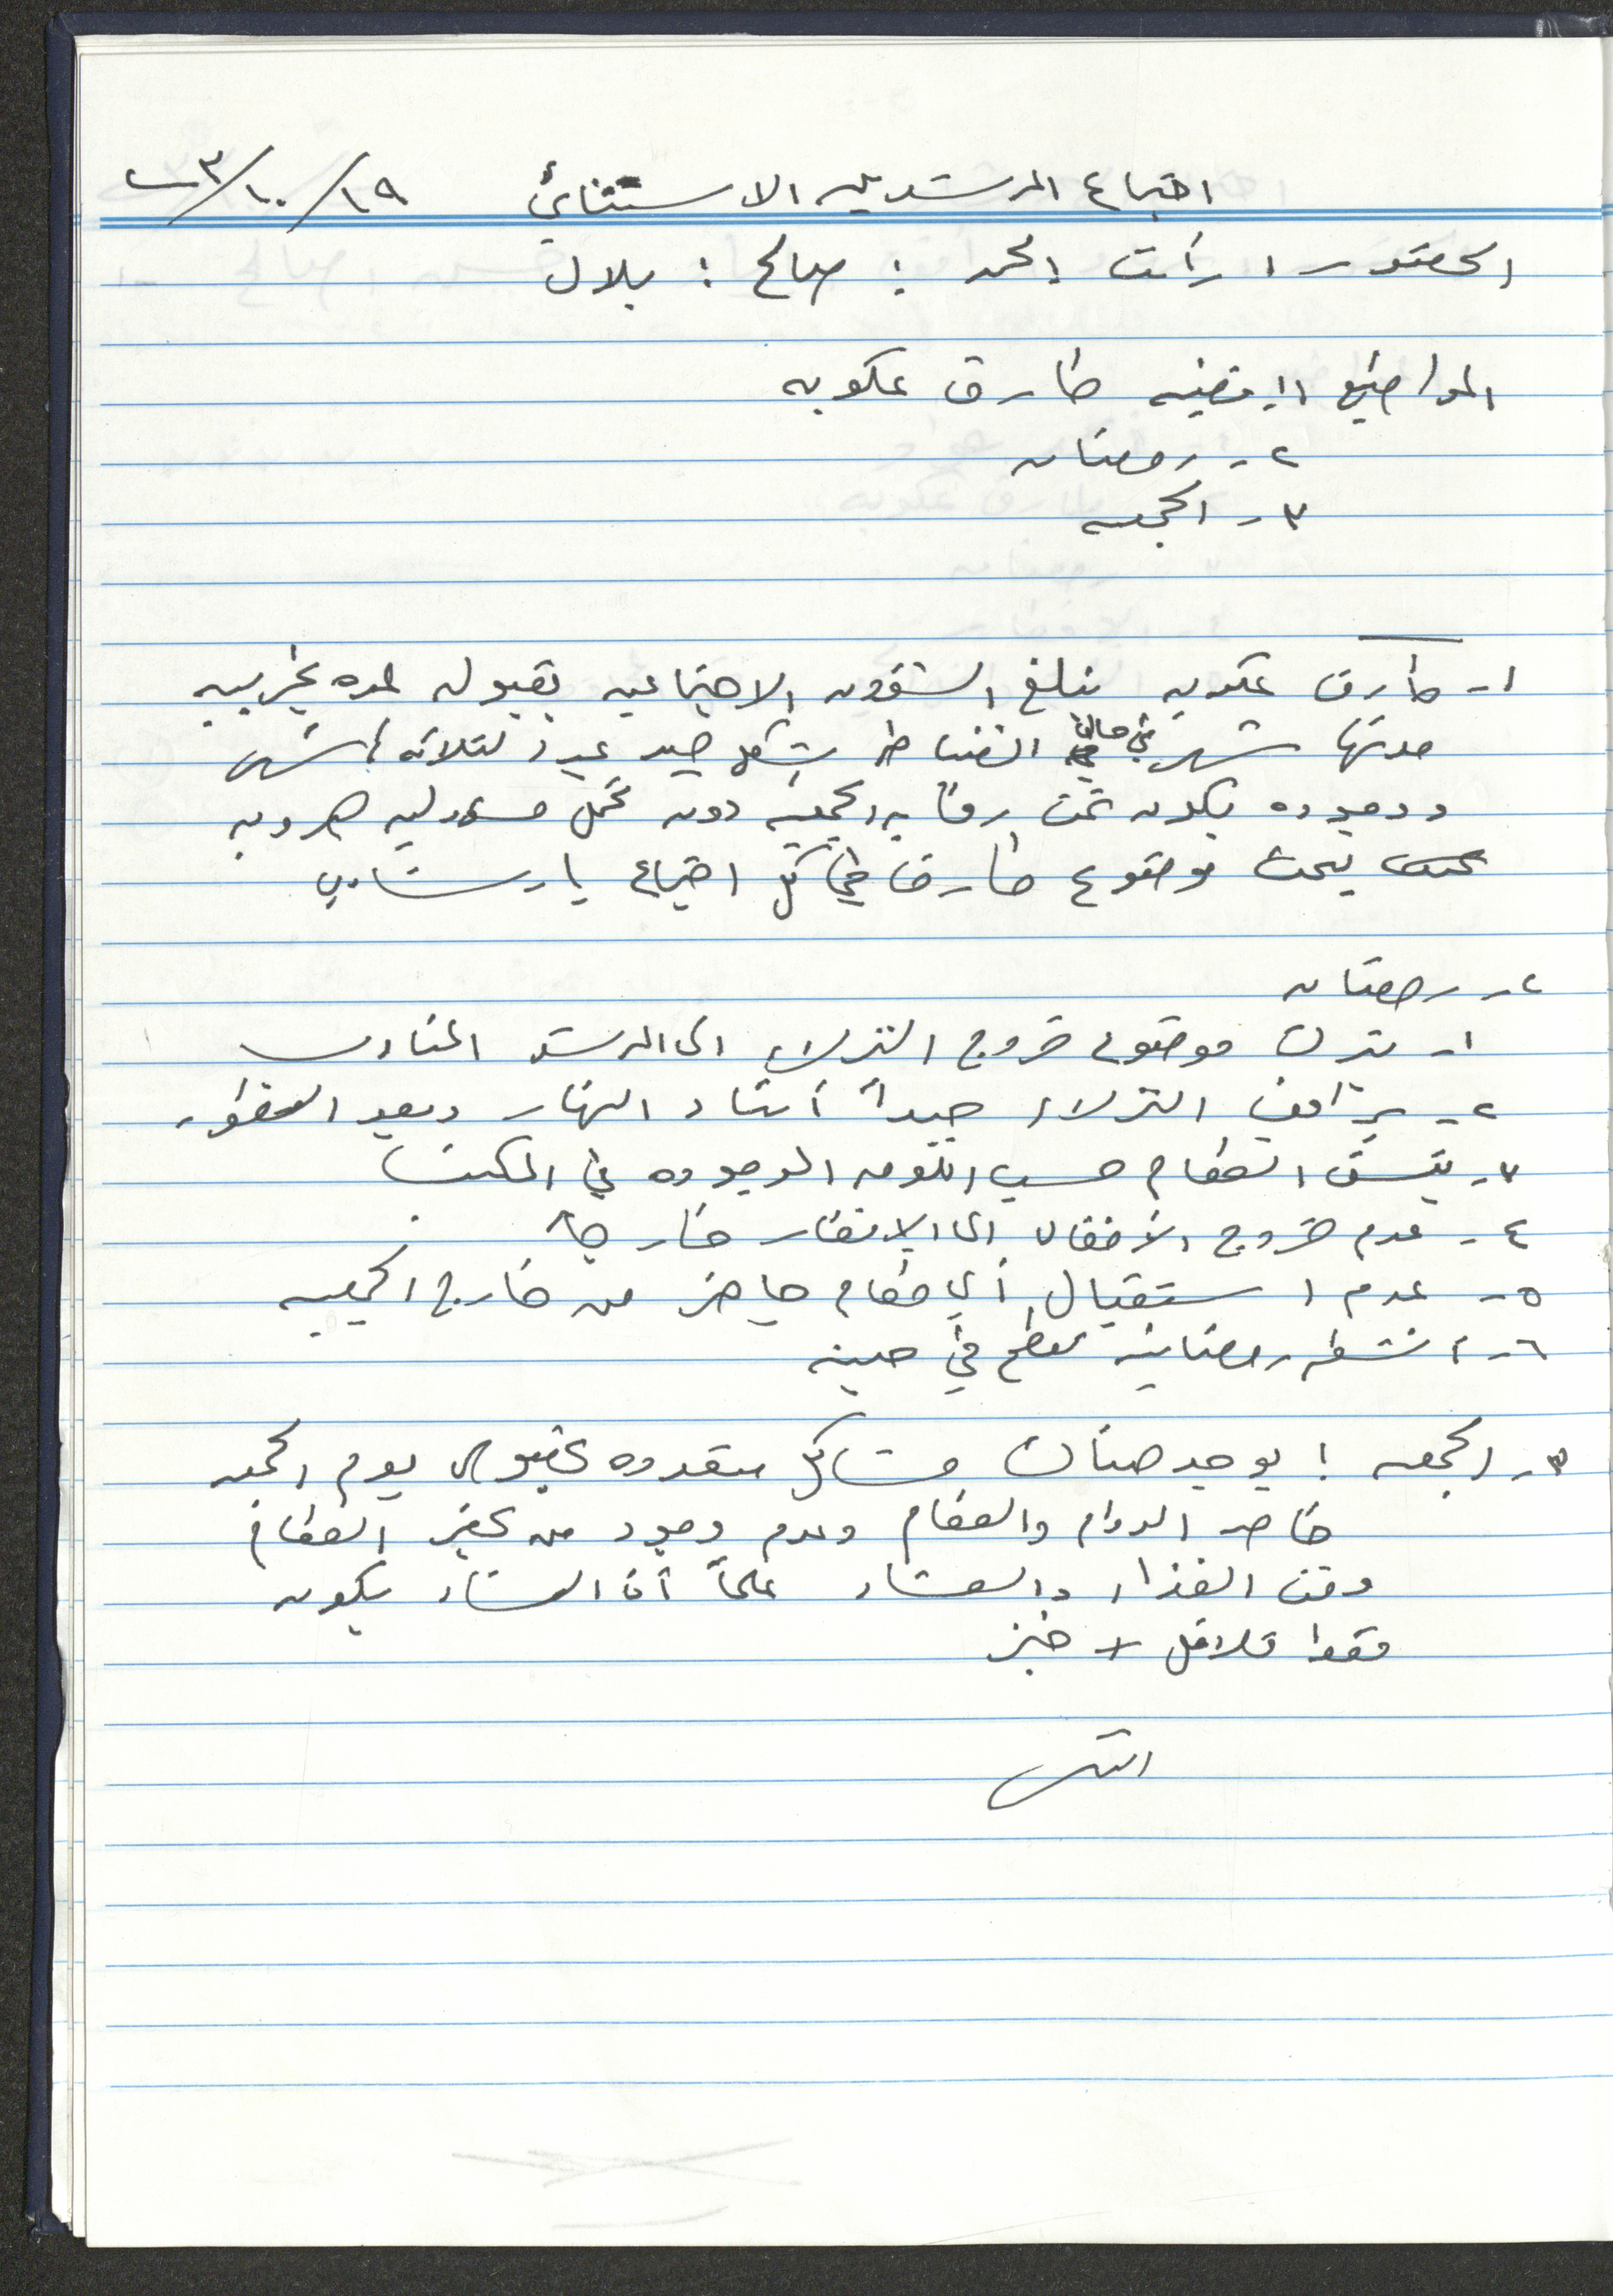 اجتماع المرشدين الاستثنائي ١٩/١٠/٠٣
الحضور: رأفت احمد؛ صالح؛ بلال
المواضيع ١- قضية طارق عكوبه
٢- رمضان
٣- الجمعه
١- طارق عكوبه نبلغ الشؤون الاجتماعيه بقبوله لمده تجريبيه
مدتها شهر في حال انضباطه بشكل جيد تمدد لثلاثه اشهر
ووجوده يكون تحت رقابه الجمعيه دون تحمل مسؤوليه هروبه
يبحث موضوع طارق في كل اجتماع إرشادي
٢- رمضان
١- يترك موضوع خروج النزلاء الى المرشد المناوب
٢- يراقب النزلاء جيداً أثناء النهار وبعد الفطور
٣- ينسق الطعام حسب اللوحه الموجوده في المكتب
٤- عدم خروج الأطفال الى الإفطار خارجاً
٥- عدم استقبال أي طعام جاهز من خارج الجمعيه
٦- انشطه رمضانيه تعطى في حينه
٣- الجمعه: يوجد هناك مشاكل متعدده بخصوص يوم الجمعه
خاصه الدوام والطعام وعدم وجود من يحضر الطعام
وقت الغذاء والعشاء علماً أن العشاء يكون
فقط فلافل + خبز
انتهى